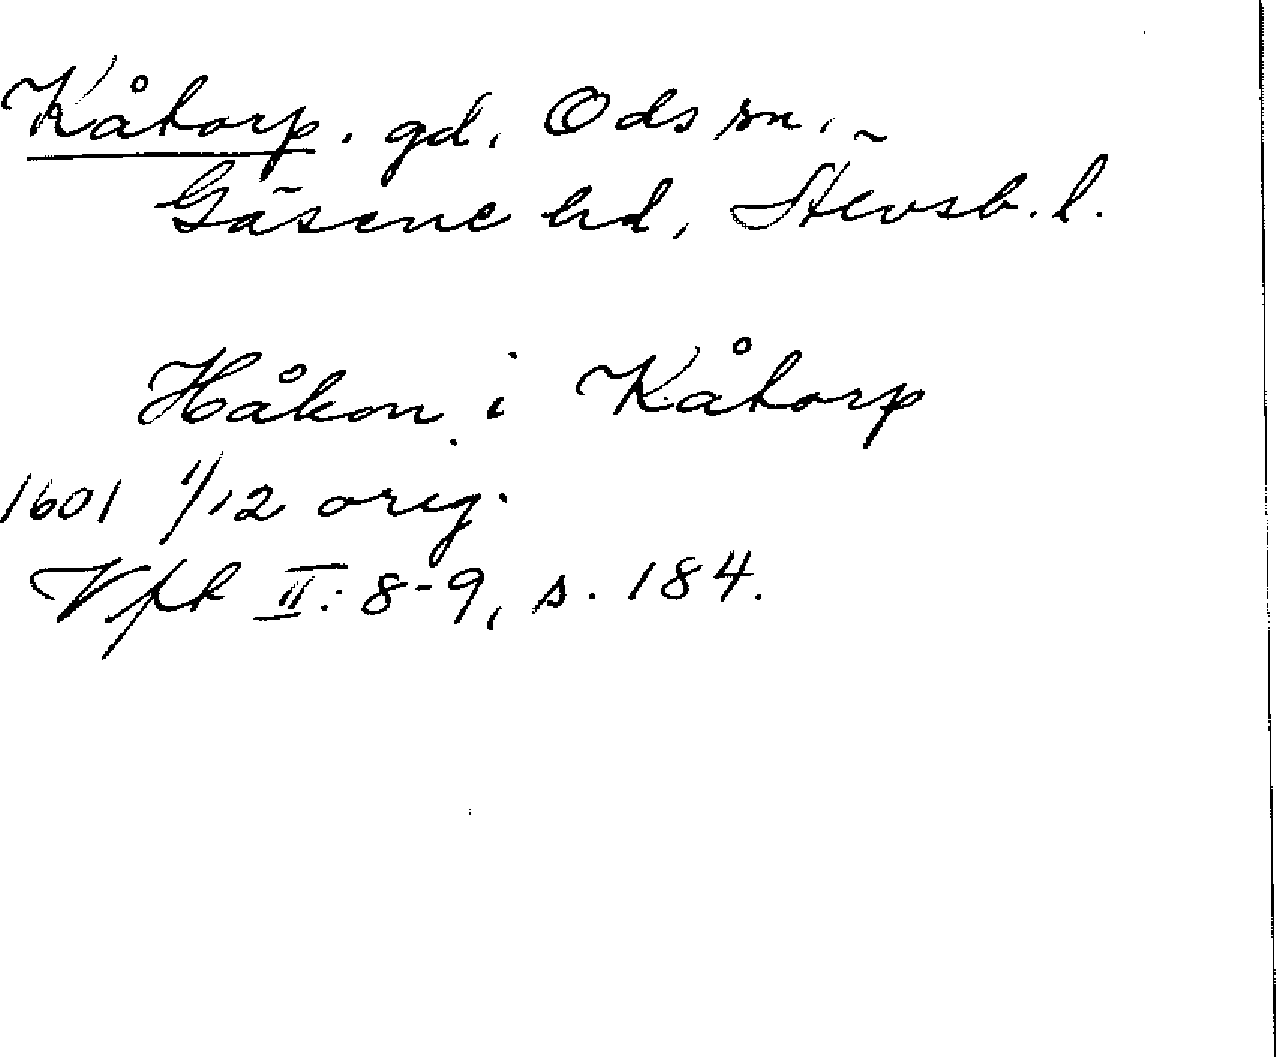 Kåtorp. gd. Ods sn.
Gäsene hd, Älvsb. l.
Håkon i Kåtorp
1601 1/12 orig.
Vfk II: 8-9, s. 184.